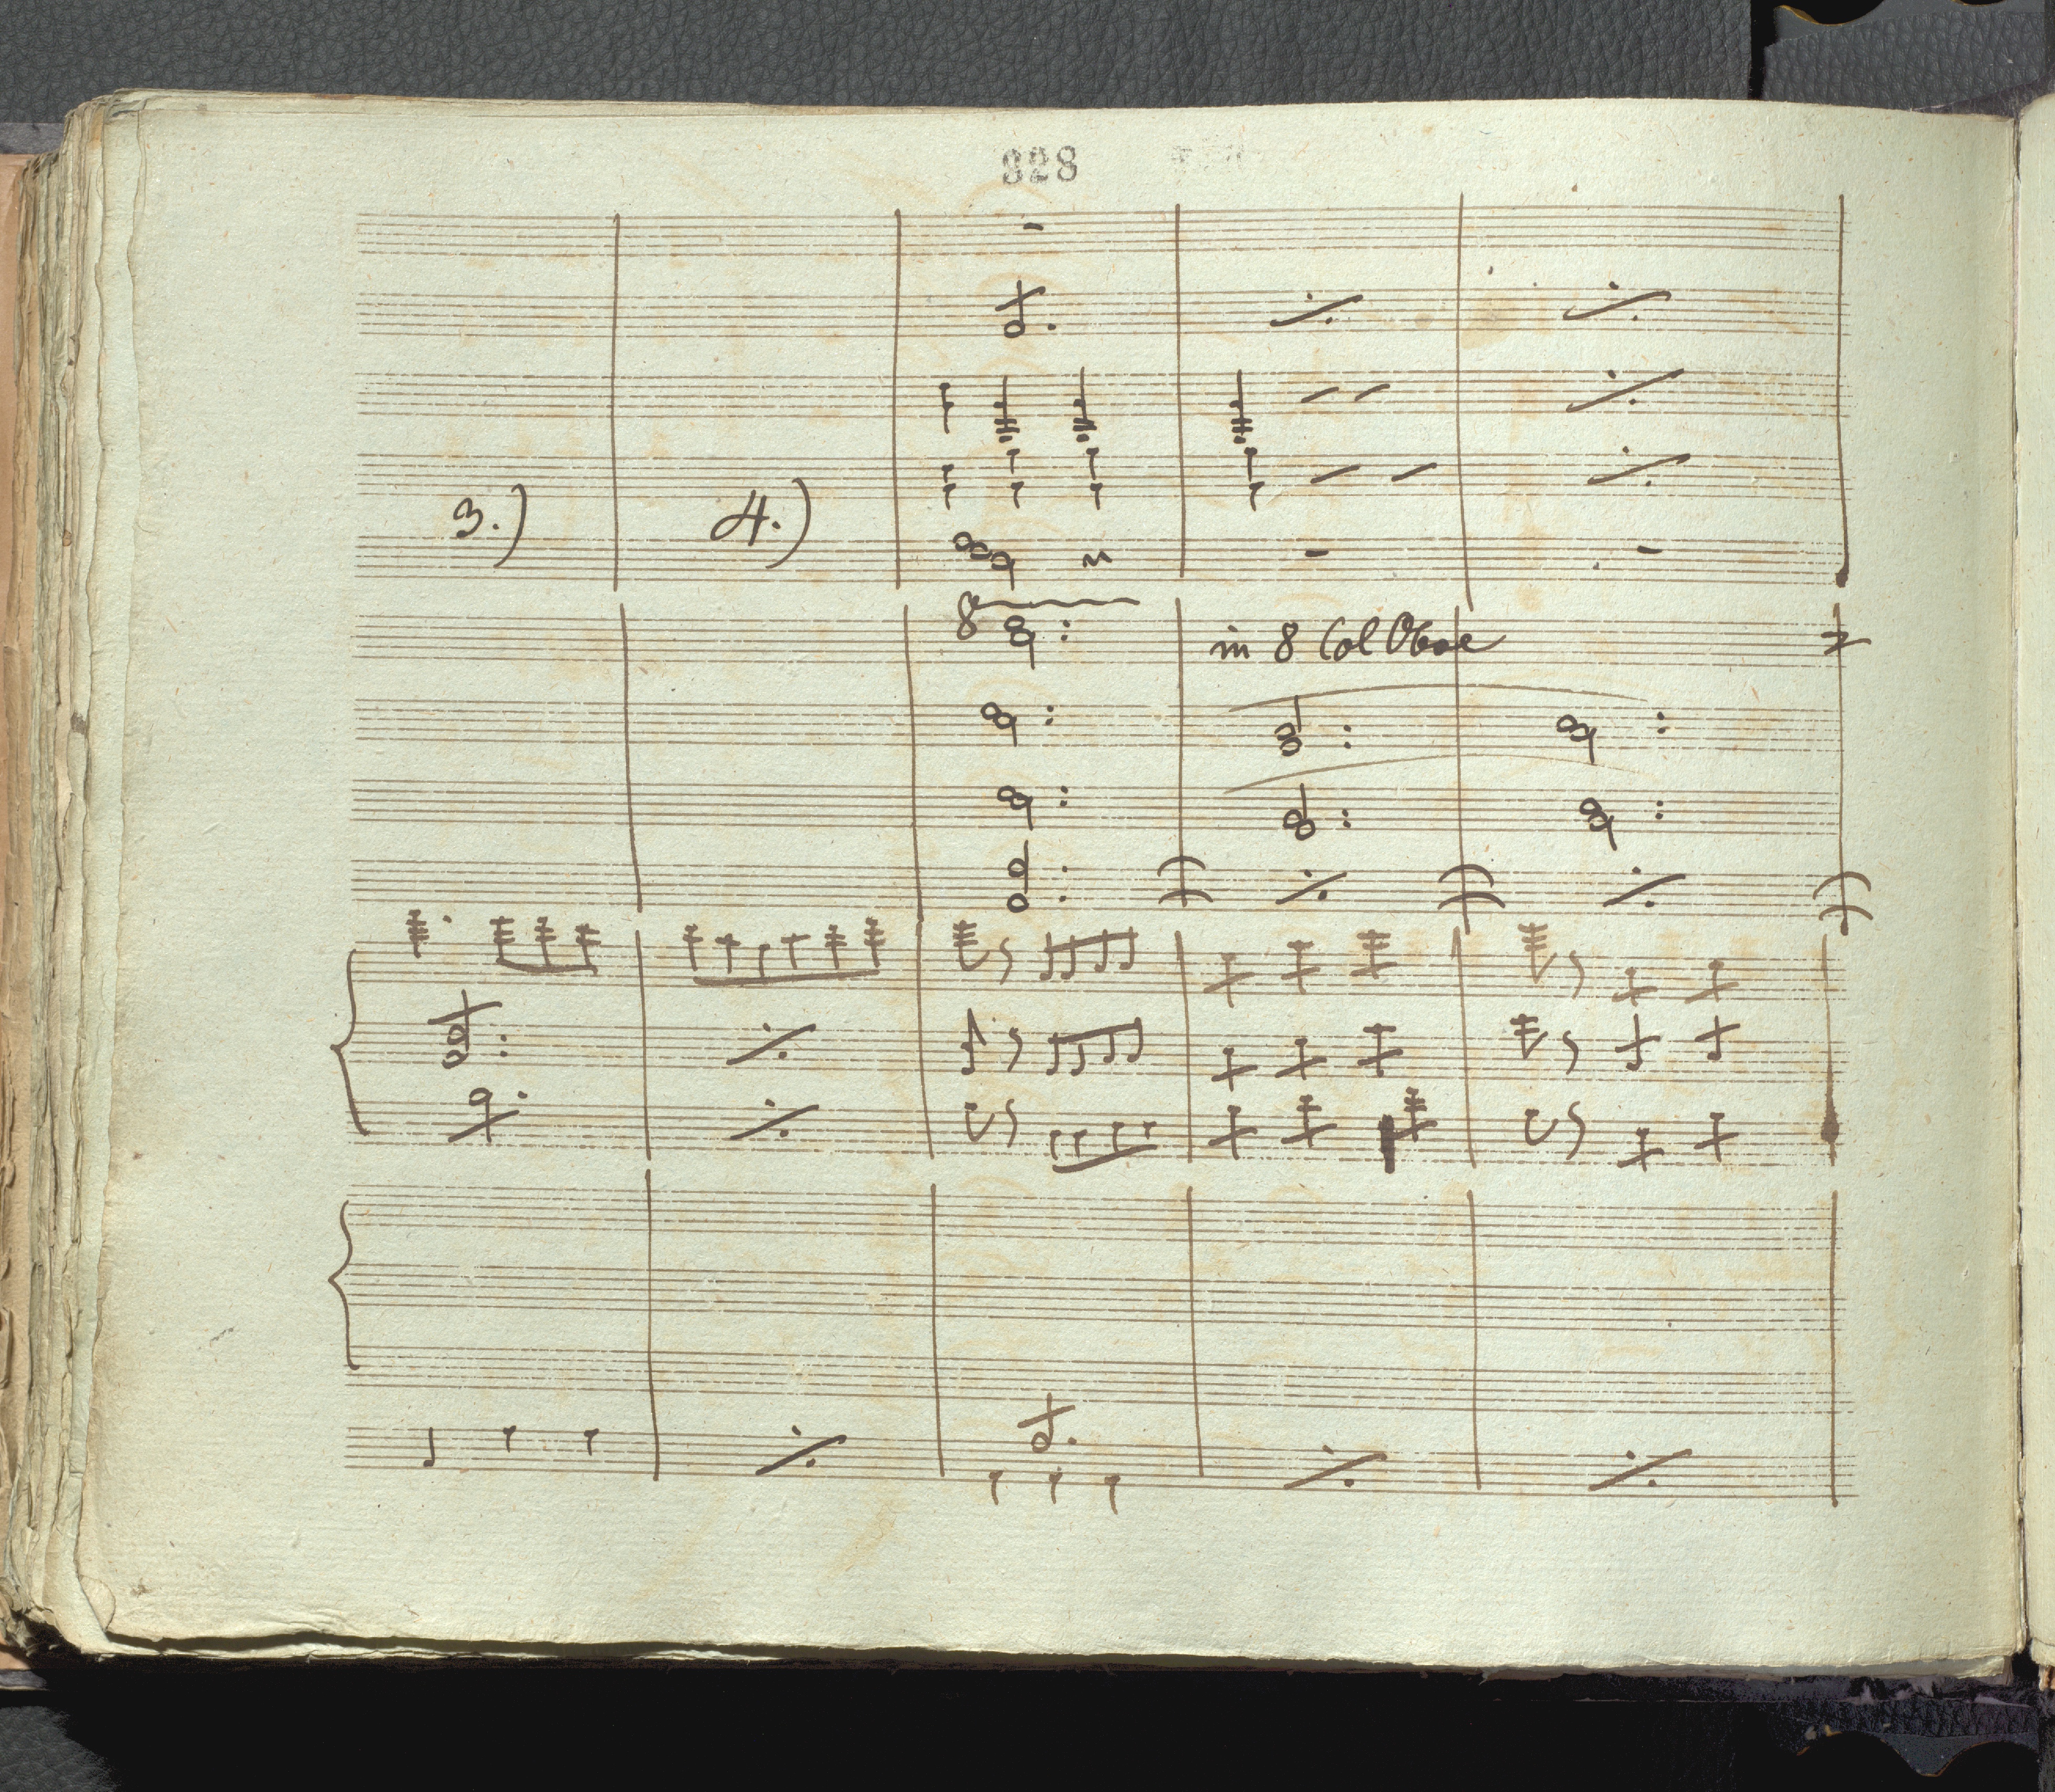 328
3.) 4.)
8
in 8 Col Oboe